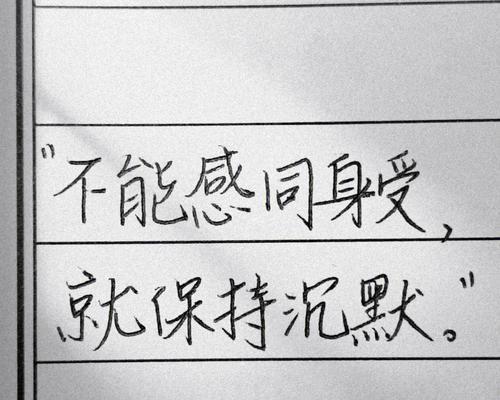 “不能感同身受,
就保持沉默。”